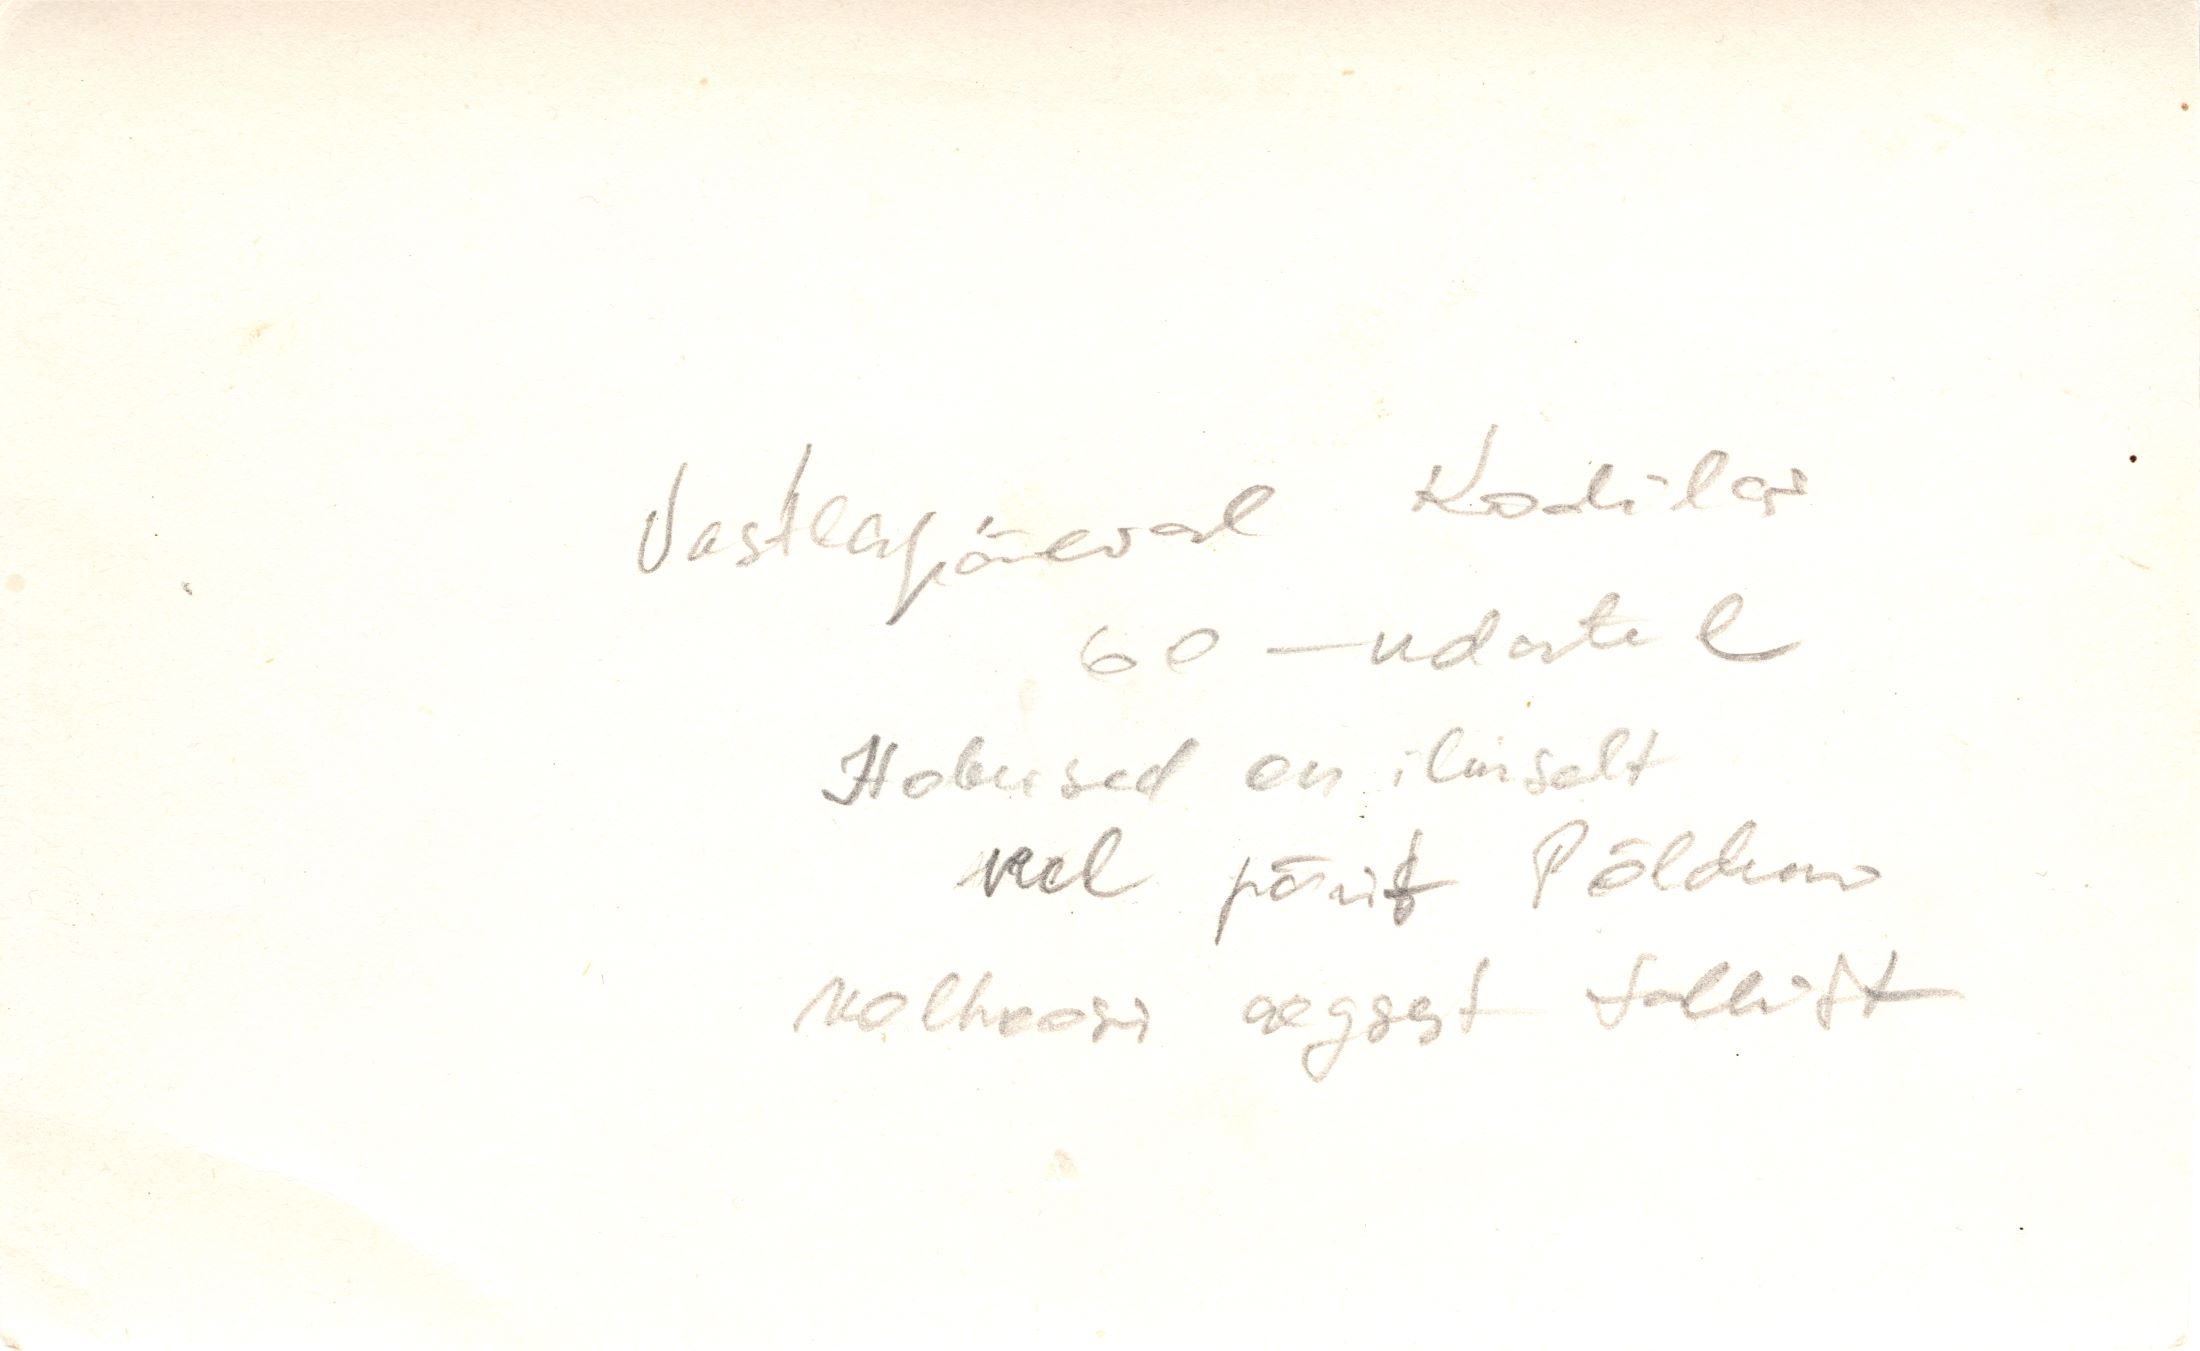 Vastlapäeval Kodilas
60-ndatel
Hobused on ilmselt
veel pärit Põldeoru
kolhoosi aegsest tallist